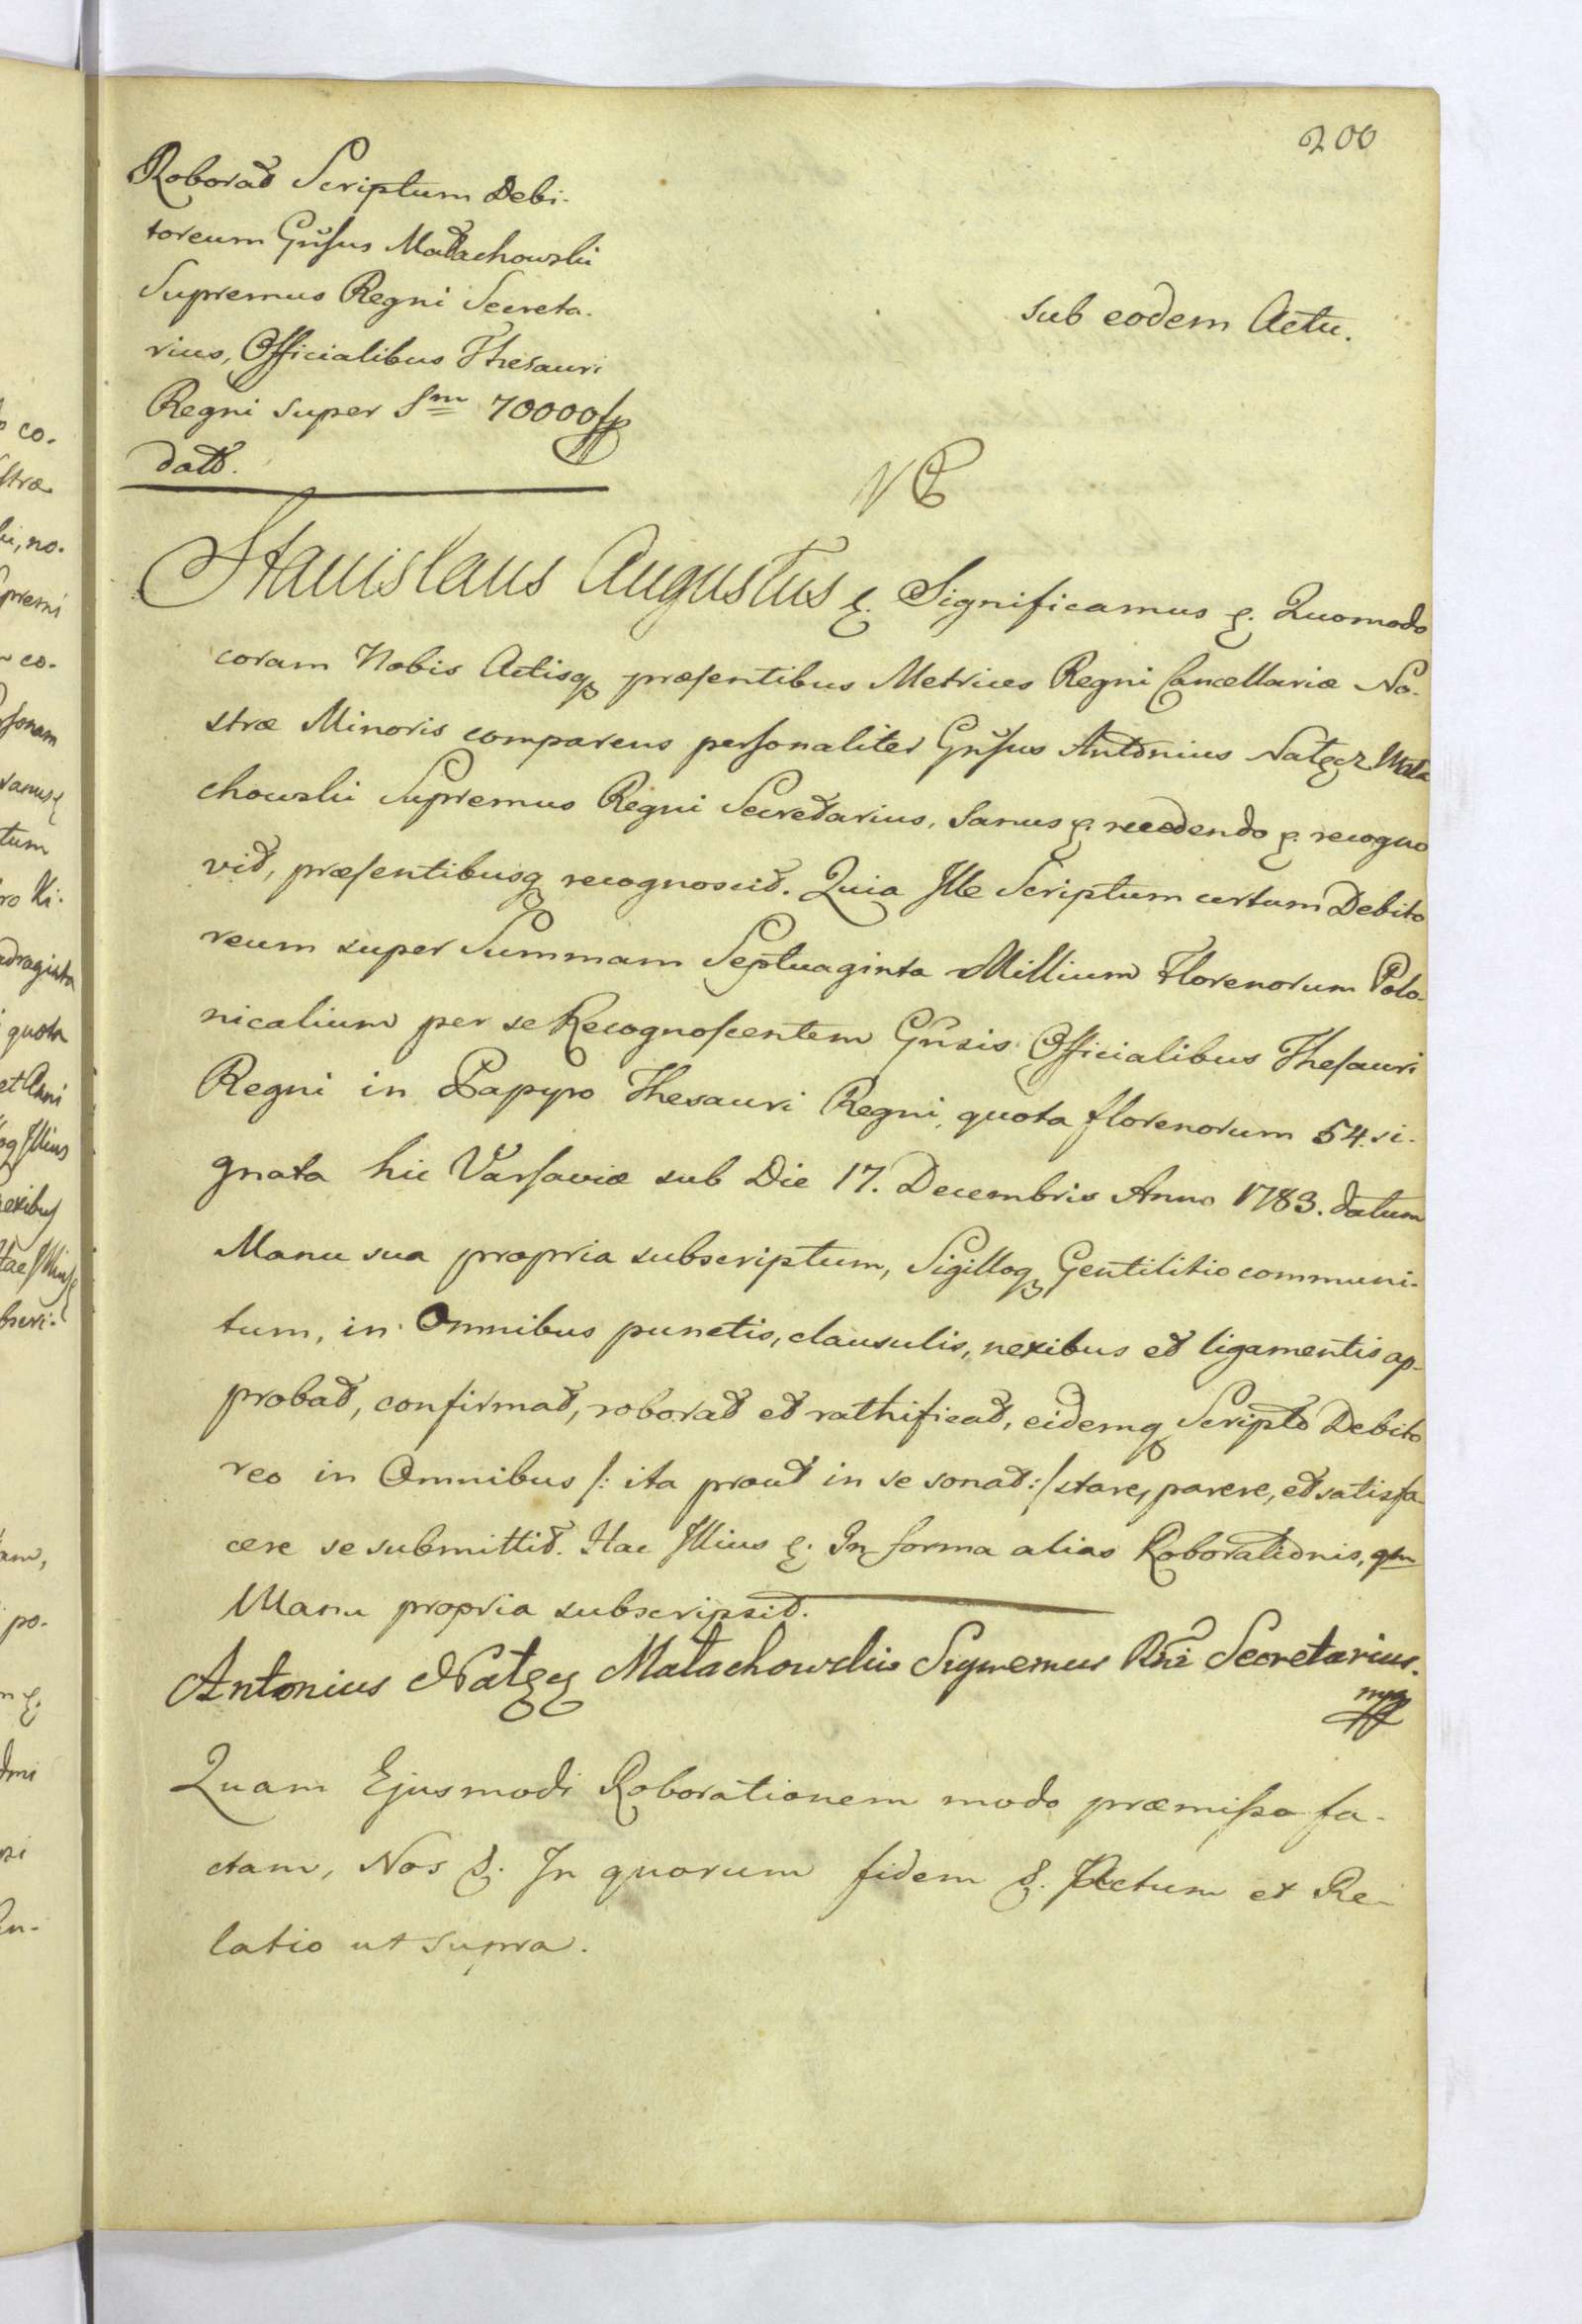 200
Roborat Scriptum Debi-
toreum Gnsus Małachowski
Supremus Regni Secreta-
rius, Officialibus Thesauri
Regni super Sm 70000 fp
datt.
sub eodem Actu.
Stanislaus Augustus &. Significamus &. Quomodo
coram Nobis Actisq præsentibus Metrices Regni Cancellariæ No-
stræ Minoris comparens personaliter Gnsus Antonius Nałęcz Mała
chowski Supremus Regni Secretarius, Sanus &. recedendo &. recogno
vit, præsentibusq recognoscit. Quia Ille Scriptum certum Debito
reum super Summam Septuaginta Millium Florenorum Polo-
nicalium per se Recognoscentem Gnsis Officialibus Thesauri
Regni in Papyro Thesauri Regni, quota florenorum 54. si-
gnata hic Varsaviæ sub Die 17. Decembris Anno 1783. datum
Manu sua propria subscriptum, Sigilloq Gentilitio communi-
tum, in Omnibus punctis, clausulis, nexibus et ligamentis ap-
probat, confirmat, roborat et rathificat, eidemq Scripto Debito
reo in Omnibus /: ita prout in se sonat :/ stare, parere, et satisfa
cere se submittit. Hac Illius &. In forma alias Roborationis, qm
Manu propria subscripsit.
Antonius Nałęcz Małachowski Supremus Rni Secretarius.
mp
Quam Ejusmodi Roborationem modo præmisso fa-
ctam, Nos &. In quorum fidem &. Actum et Re-
latio ut supra.